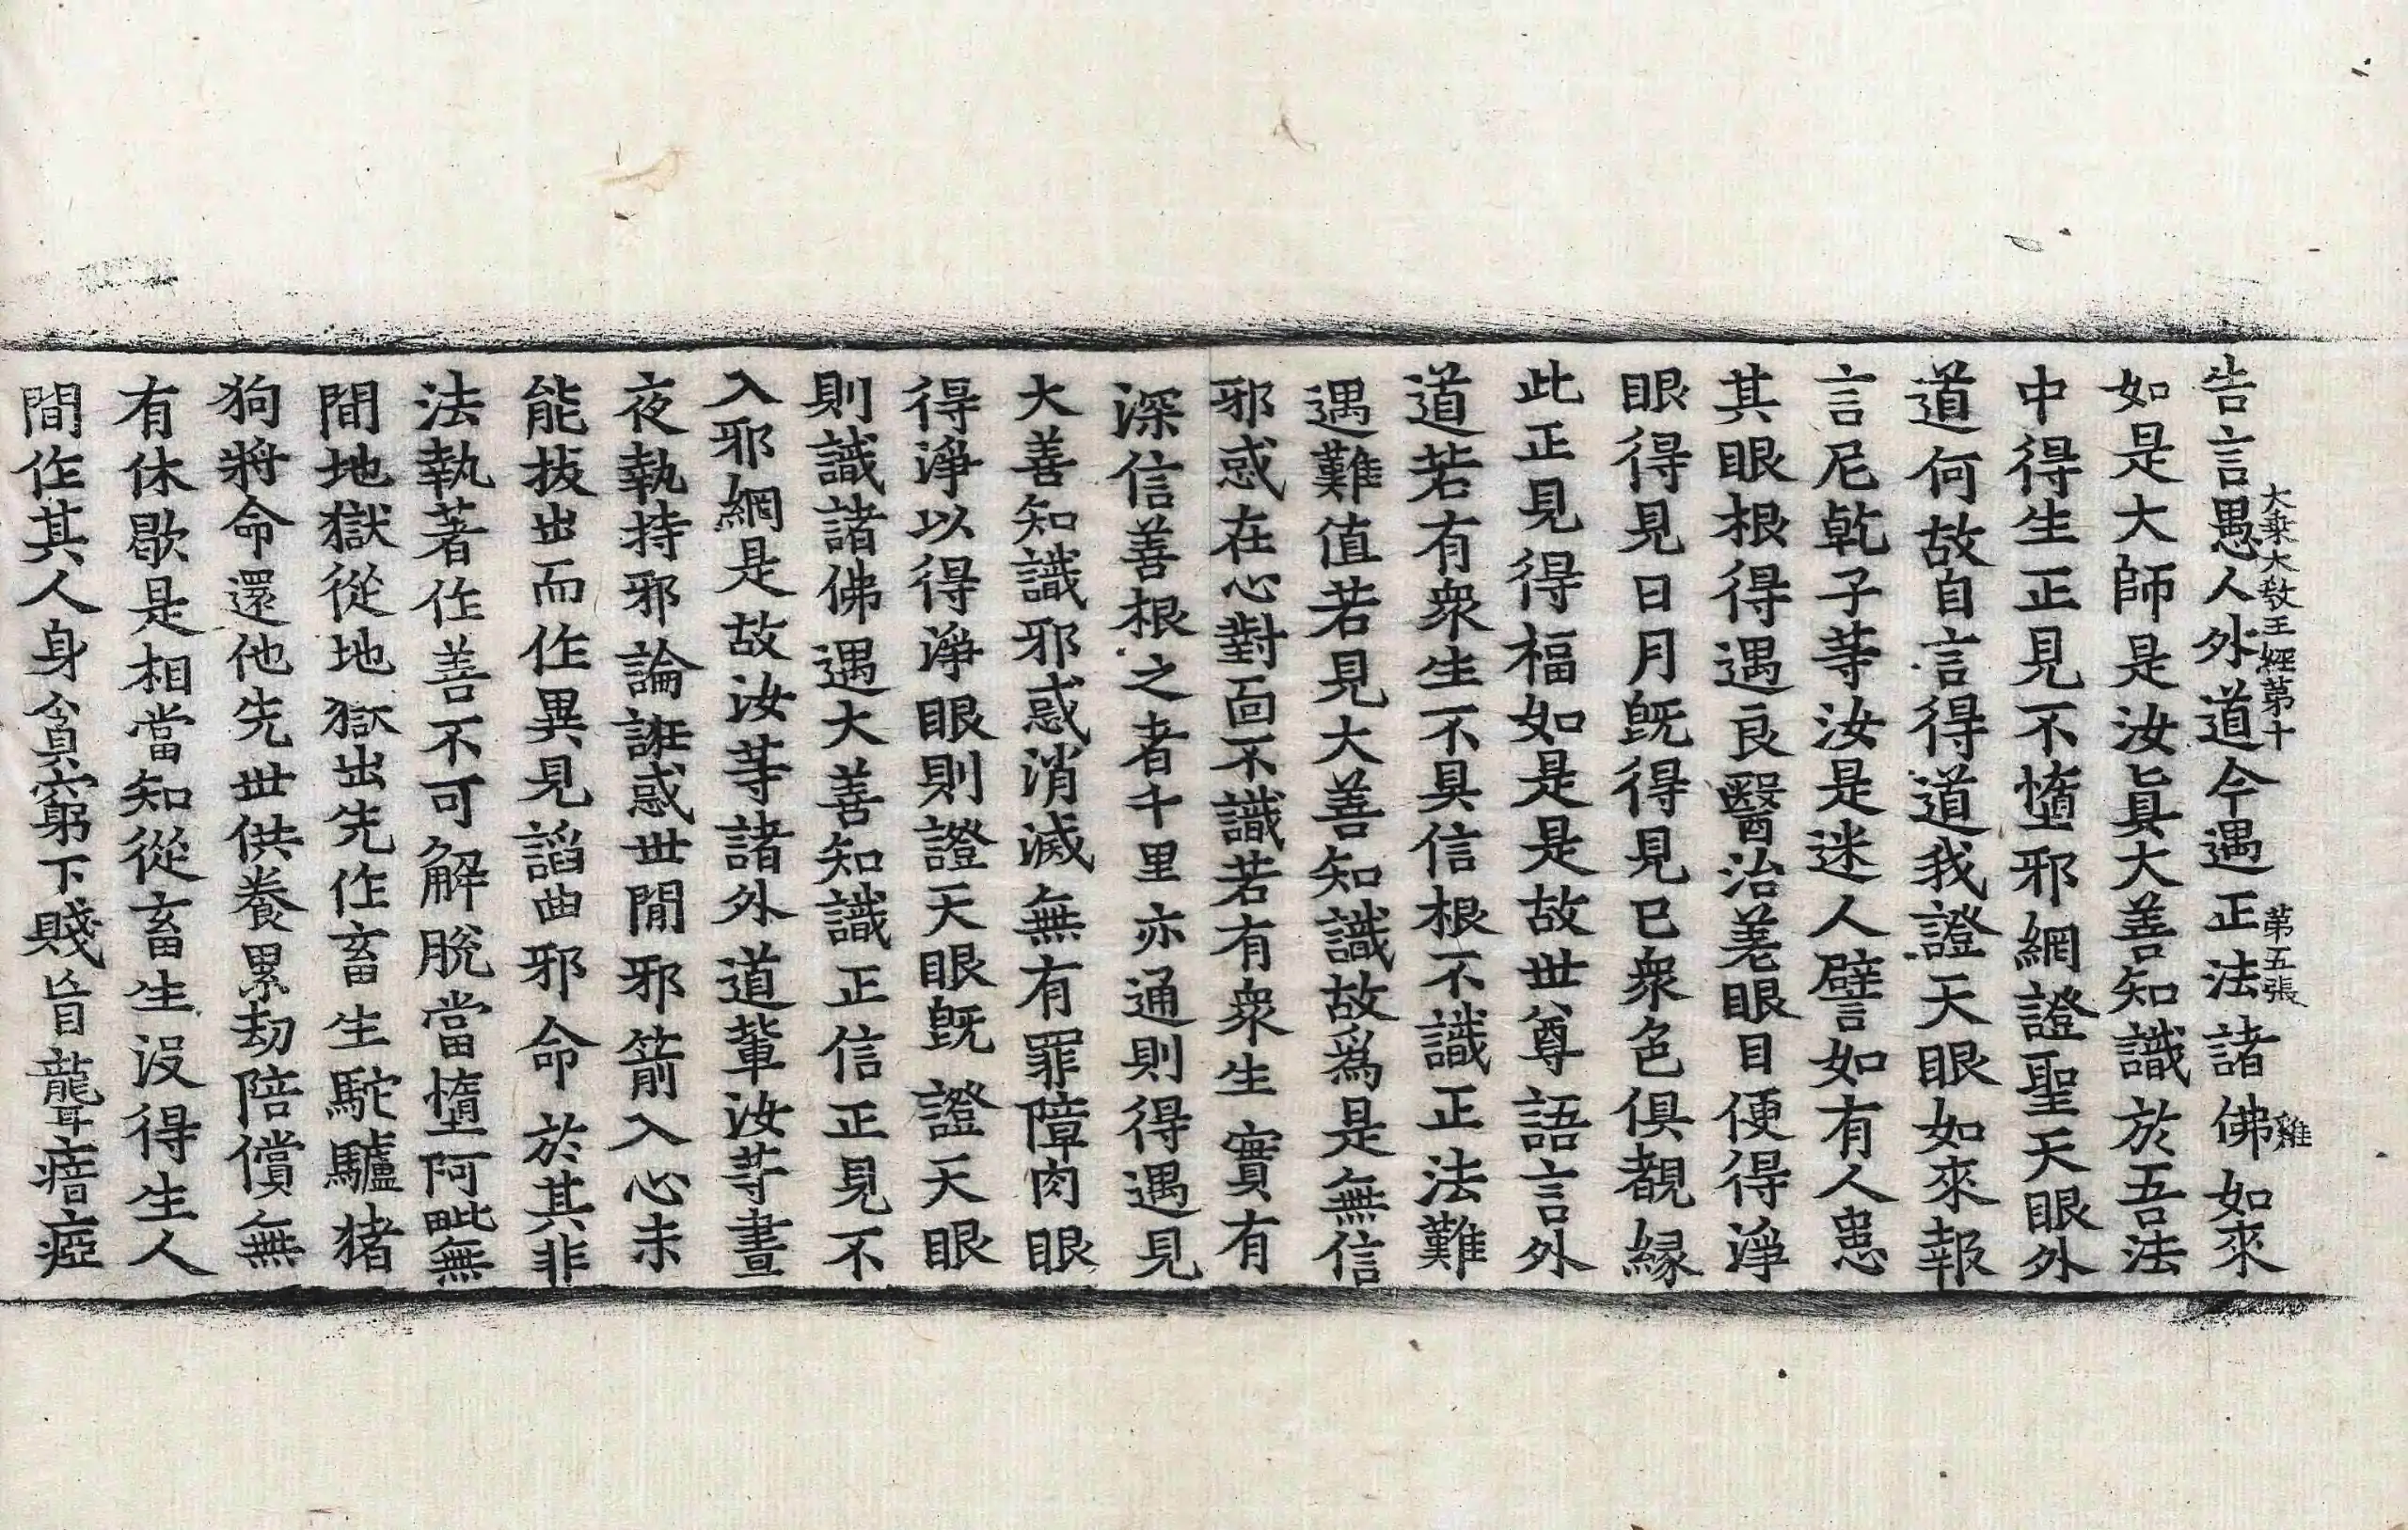 大乘大教王經第十 第五張 雞
告言愚人外道今遇正法諸佛如來
如是大師是汝眞大善知識於吾法
中得生正見不墮邪網證聖天眼外
道何故自言得道我證天眼如來報
言尼乾子等汝是迷人譬如有人患
其眼根得遇良醫治差眼目便得淨
眼得見日月旣得見已衆色俱覩緣
此正見得福如是是故世尊語言外
道若有衆生不具信根不識正法難
遇難值若見大善知識故爲是無信
邪惑在心對面不識若有衆生實有
深信善根之者千里亦通則得遇見
大善知識邪惑消滅無有罪障肉眼
得淨以得淨眼則證天眼旣證天眼
則識諸佛遇大善知識正信正見不
入邪網是故汝等諸外道輩汝等晝
夜執持邪論誑惑世閒邪箭入心未
能拔出而作異見謟曲邪命於其非
法執著作善不可解脫當墮阿毗無
間地獄從地獄出先作畜生駝驢猪
狗將命還他先世供養累劫陪償無
有休歇是相當知從畜生沒得生人
間作其人身貧窮下賤盲聾瘖瘂